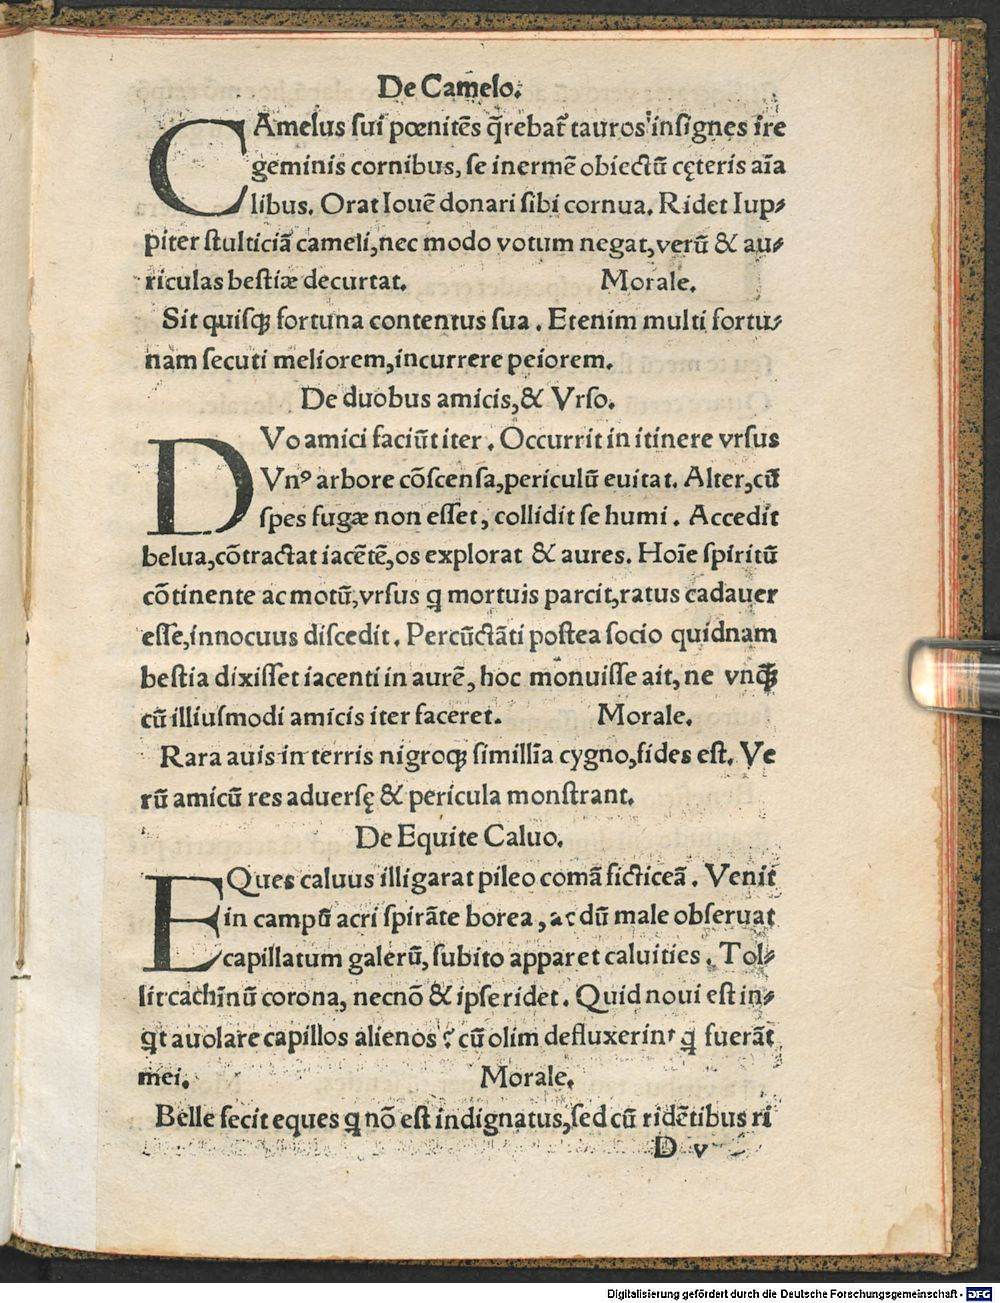 De Camelo.
CAmelus sui pœnitēs q̄rebat᷑ tauros insignes ire
geminis cornibus, se inermē obiectū cęteris aīa
libus. Orat Iouē donari sibi cornua. Ridet Iup⸗
piter stulticiā cameli, nec modo votum negat, verū & au⸗
riculas bestiæ decurtat. Morale.
Sit quisqꝫ fortuna contentus sua. Etenim multi fortu⸗
nam secuti meliorem, incurrere peiorem.
De duobus amicis, & Vrso.
DVo amici faciūt iter. Occurrit in itinere vrsus
Vnꝰ arbore cōscensa, periculū euitat. Alter, cū
spes fugæ non esset, collidit se humi. Accedit
belua, cōtractat iacētē, os explorat & aures. Hoīe spiritū
cōtinente ac motū, vrsus q mortuis parcit, ratus cadauer
esse, innocuus discedit. Percūctāti postea socio quidnam
bestia dixisset iacenti in aurē, hoc monuisse ait, ne vnq̄ꝫ
cū illiusmodi amicis iter faceret. Morale.
Rara auis in terris nigroqꝫ simillīa cygno, fides est. Ve
rū amicū res aduersę & pericula monstrant.
De Equite Caluo.
EQues caluus illigarat pileo comā ficticeā. Venit
in campū acri spirāte borea, ac dū male obseruat
capillatum galerū, subito apparet caluities. Tol⸗
lit cachīnū corona, necnō & ipse ridet. Quid noui est in⸗
qt auolare capillos alienos? cū olim defluxerint q fuerāt
mei. Morale.
Belle fecit eques q nō est indignatus, sed cū ridētibus ri
D v
Digitalisierung gefördert durch die Deutsche Forschungsgemeinschaft - DFG